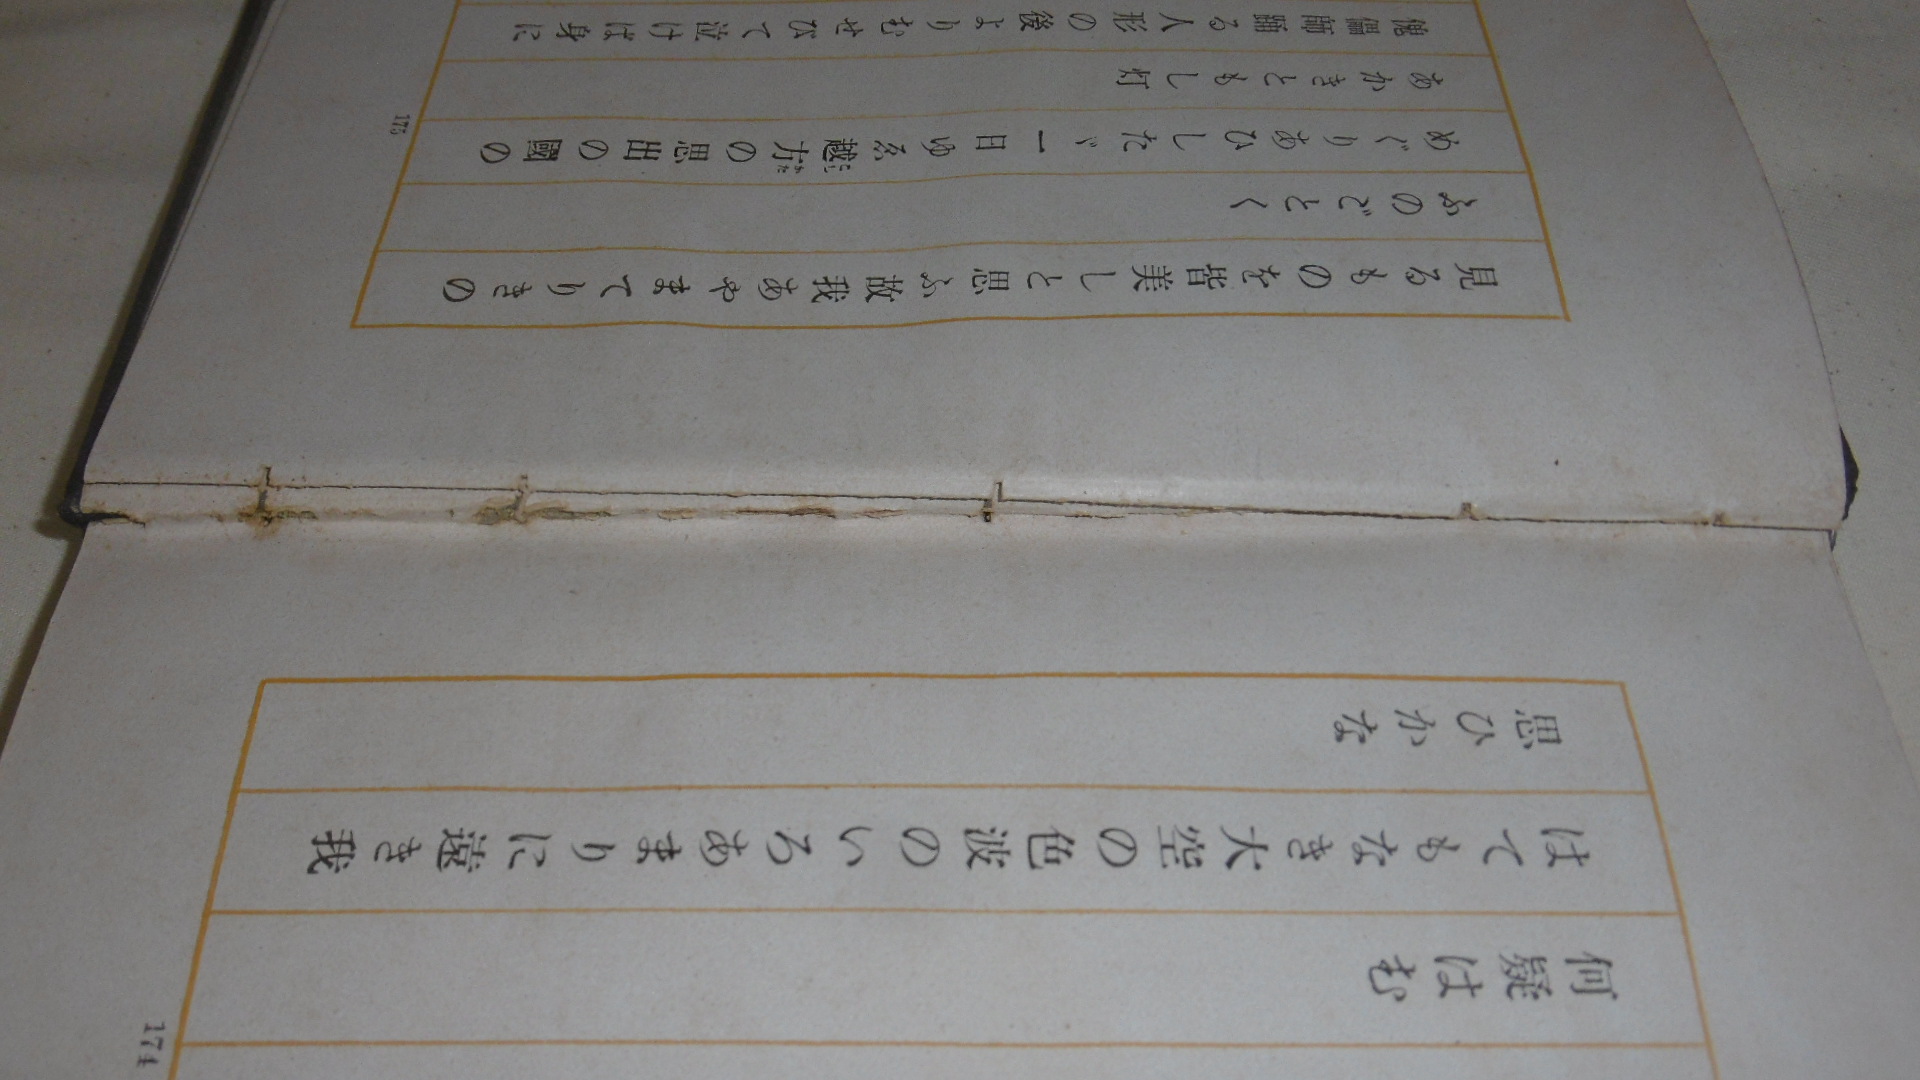 何疑はむ
はてもなき大空の色波のいろあまりに遠き我
思ひかな
174
見るものを皆美しと思ふ故我あやまてりきの
ふのごとく
めぐりあひしたゞ一日ゆゑ越方の思出の國の
こしかた
あかきともし灯
傀儡師踊る人形の後よりむせびて泣けば身に
175